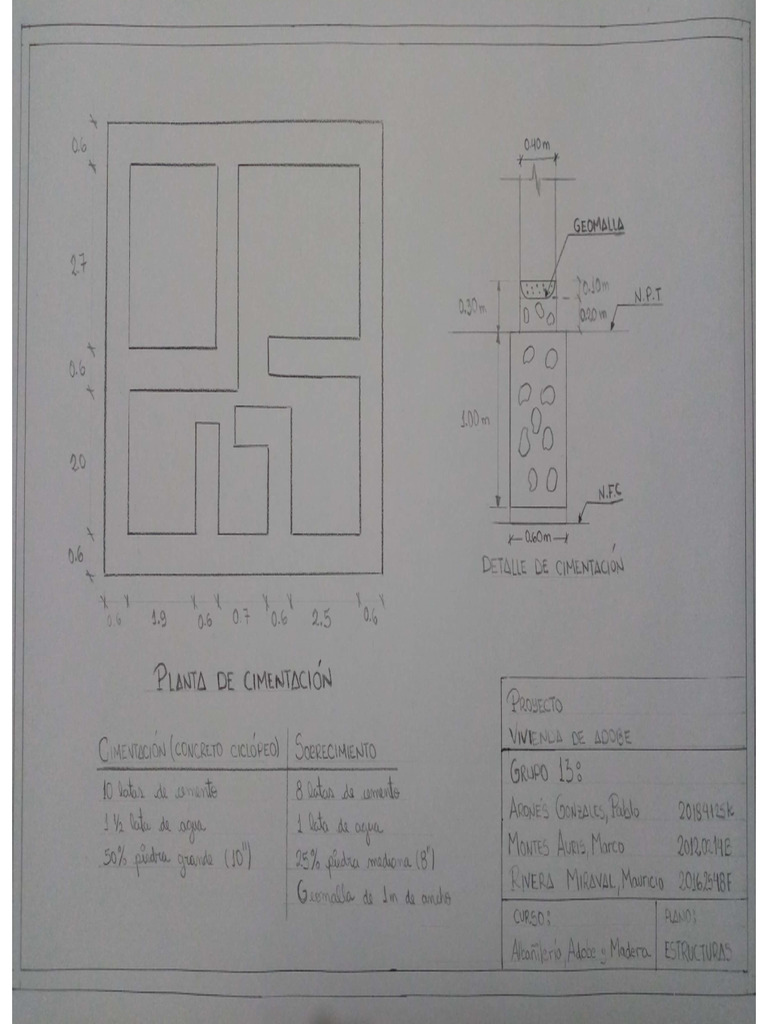 0.6
2.7
0.6
2.0
0.6
0.6 1.9 0.6 0.7 0.6 2.5 0.6
PLANTA DE CIMENTACIÓN
0.40m
GEOMALLA
0.10m
0.30m
0.20m
N.P.T.
1.00m
N.F.C
0.60m
DETALLE DE CIMENTACIÓN
CIMENTACIÓN (CONCRETO CICLÓPEO) SOBRECIMIENTO
10 latas de cemento 8 latas de cemento
1 ½ lata de agua 1 lata de agua
50% piedra grande (10") 25% piedra mediana (8")
Geomalla de 1m de ancho
PROYECTO
VIVIENDA DE ADOBE
GRUPO 13:
ARONÉS GONZALES, Pablo 20184125K
MONTES AURIS, Marco
RIVERA MIRAVAL, Mauricio 20162548F
CURSO: PLANO:
Albañilería, Adobe y Madera ESTRUCTURAS